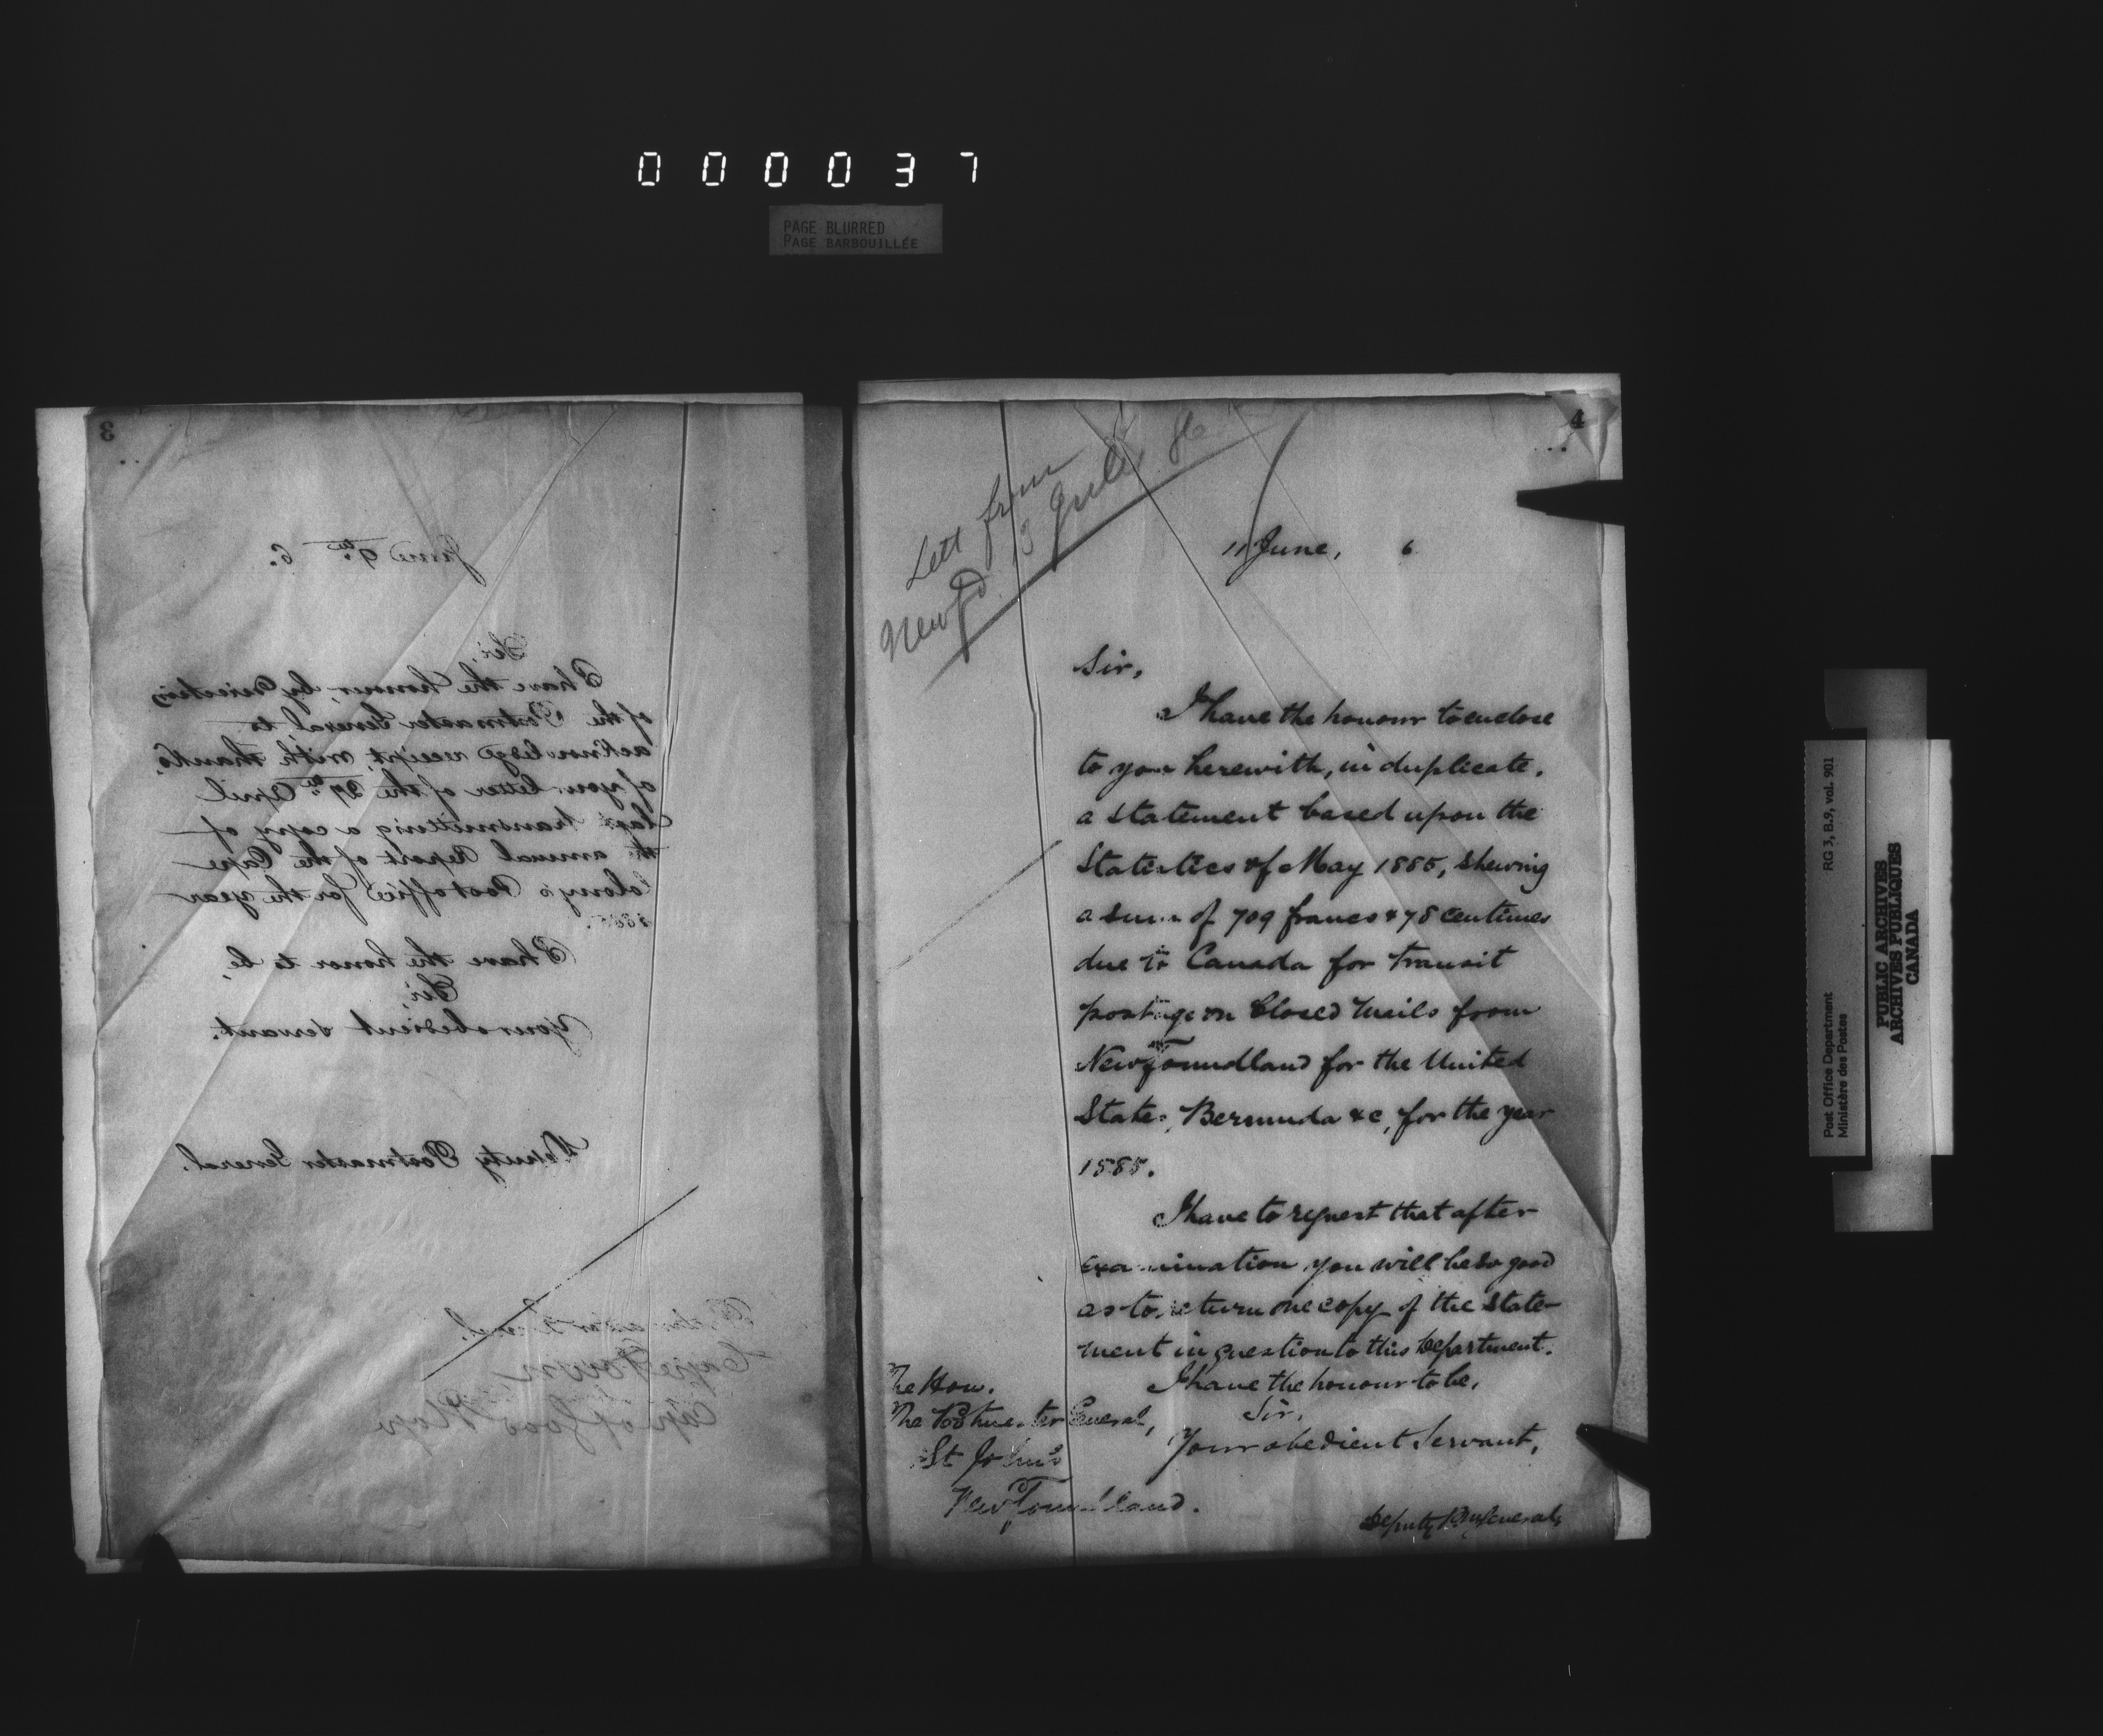 000037
PAGE BLURRED
PAGE BARBOUILLÉE
3
June 9th 6.
Sir,
I have the honour, by direction
of the Postmaster General, to
acknowledge receipt, with thanks,
of your letter of the 29th April
last transmitting a copy of
the annual Report of the Cape
Colony's Post office for the year
1885.
I have the honor to be,
Sir,
Your obedient Servant.
Deputy Postmaster General.
Cape Town
Cape of Good Hope
4
Lett from
Newfd 3 July 86
11 June, 6
Sir,
I have the honour to enclose
to you herewith, in duplicate,
a statement based upon the
Statistics of May 1885, shewing
a sum of 709 francs & 78 centimes
due to Canada for transit
postage on Closed Mails from
Newfoundland for the United
States, Bermuda &c, for the year
1885.
I have to request that after
examination you will be so good
as to return one copy of the state-
ment in question to this Department.
I have the honour to be,
Sir,
Your obedient Servant,
Deputy PMGeneral,
The Hon.
The Postmaster General,
St John's
Newfoundland.
Post Office Department
Ministère des Postes
RG 3, B.9, vol. 901
PUBLIC ARCHIVES
ARCHIVES PUBLIQUES
CANADA